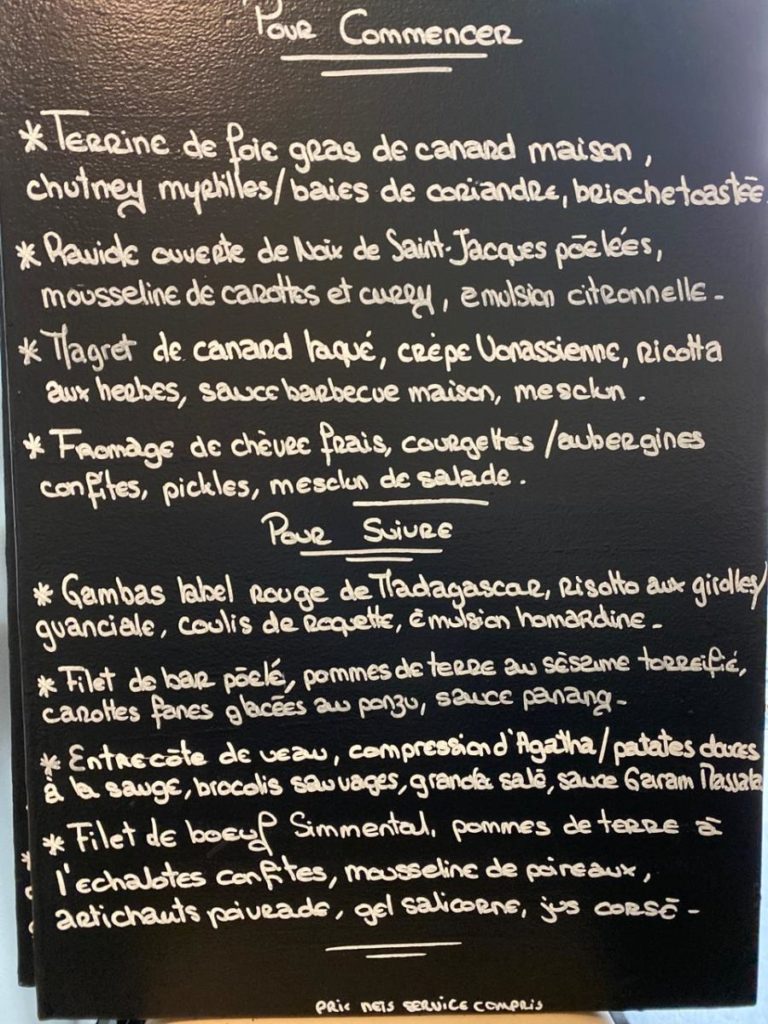 Pour Commencer
* Terrine de foie gras de canard maison,
chutney myrtilles/baies de coriandre, brioche toastée
* Raviole ouverte de Noix de Saint-Jacques pōelées,
mousseline de carottes et curry, émulsion citronnelle -
* Magret de canard laqué, crèpe Vonassienne, ricotta
aux herbes, sauce barbecue maison, mesclun.
* Fromage de chèvre frais, courgettes /aubergines
confites, pickles, mesclun de salade.
Pour Suivre
* Gambas label rouge de Madagascar, risotto aux girolles/
guanciale, coulis de roquette, émulsion homardine -
* Filet de bar pōelé, pommes de terre au sésame torréfié,
carottes fanes glacées au ponzu, sauce panang -
* Entrecôte de veau, compression d'Agatha/patates douces
à la sauge, brocolis sauvages, granola salé, sauce Garam Massala
* Filet de boeuf Simmental, pommes de terre à
l'echalotes confites, mousseline de poireaux,
artichauts poivrade, gel salicorne, jus corsé -
Prix nets service compris